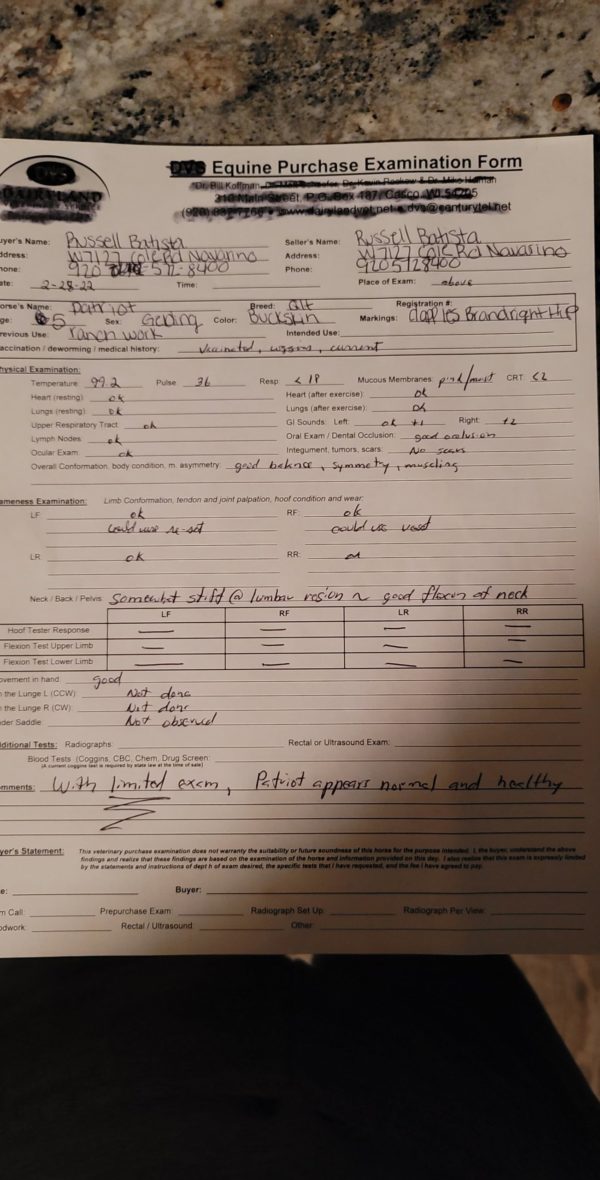 DVS
DAIRYLAND
DVS Equine Purchase Examination Form
Dr. Bill Koffman, Dr. Kevin & Dr. Mike
210 Main Street, P.O. Box 187, Casco, WI 54205
www.dairylandvet.net • dvs@centurytel.net
uyer's Name: Russell Batista
Seller's Name: Russell Batista
ddress: W7127 Rd Navarino
Address: W7127 Rd Navarino
hone: 920 572-8400
Phone: 9205728400
ate: 2-28-22 Time:
Place of Exam: above
orse's Name: Patriot Breed: Registration #:
ge: 5 Sex: Gelding Color: Buckskin Markings: dapples Brand right Hip
revious Use: ranch work Intended Use:
accination / deworming / medical history: current
hysical Examination:
Temperature: 99.2 Pulse 36 Resp < 18 Mucous Membranes: pink/moist CRT: <2
Heart (resting): ok Heart (after exercise): ok
Lungs (resting): ok Lungs (after exercise): ok
Upper Respiratory Tract ok GI Sounds: Left: ok +1 Right: +2
Lymph Nodes ok Oral Exam / Dental Occlusion: good occlusion
Ocular Exam: ok Integument, tumors, scars: No scars
Overall Conformation, body condition, m. asymmetry: good balance, symmetry, muscling
ameness Examination: Limb Conformation, tendon and joint palpation, hoof condition and wear:
LF: ok RF: ok
could use re-set could use
LR ok RR: ok
Neck / Back / Pelvis Somewhat stiff @ lumbar region ~ good flexion of neck
LF RF LR RR
Hoof Tester Response — — — —
Flexion Test Upper Limb — — — —
Flexion Test Lower Limb — — — —
ovement in hand: good
n the Lunge L (CCW): Not done
n the Lunge R (CW): Not done
nder Saddle: Not observed
dditional Tests: Radiographs: Rectal or Ultrasound Exam:
Blood Tests (Coggins, CBC, Chem, Drug Screen:
(A current coggins test is required by state law at the time of sale)
omments: With limited exam, Patriot appears normal and healthy
uyer's Statement: This veterinary purchase examination does not warranty the suitability or future soundness of this horse for the purpose intended. I, the buyer, understand the above
findings and realize that these findings are based on the examination of the horse and information provided on this day. I also realize that this exam is expressly limited
by the statements and instructions of dept h of exam desired, the specific tests that I have requested, and the fee I have agreed to pay.
e: Buyer:
m Call: Prepurchase Exam: Radiograph Set Up: Radiograph Per View:
odwork: Rectal / Ultrasound: Other: